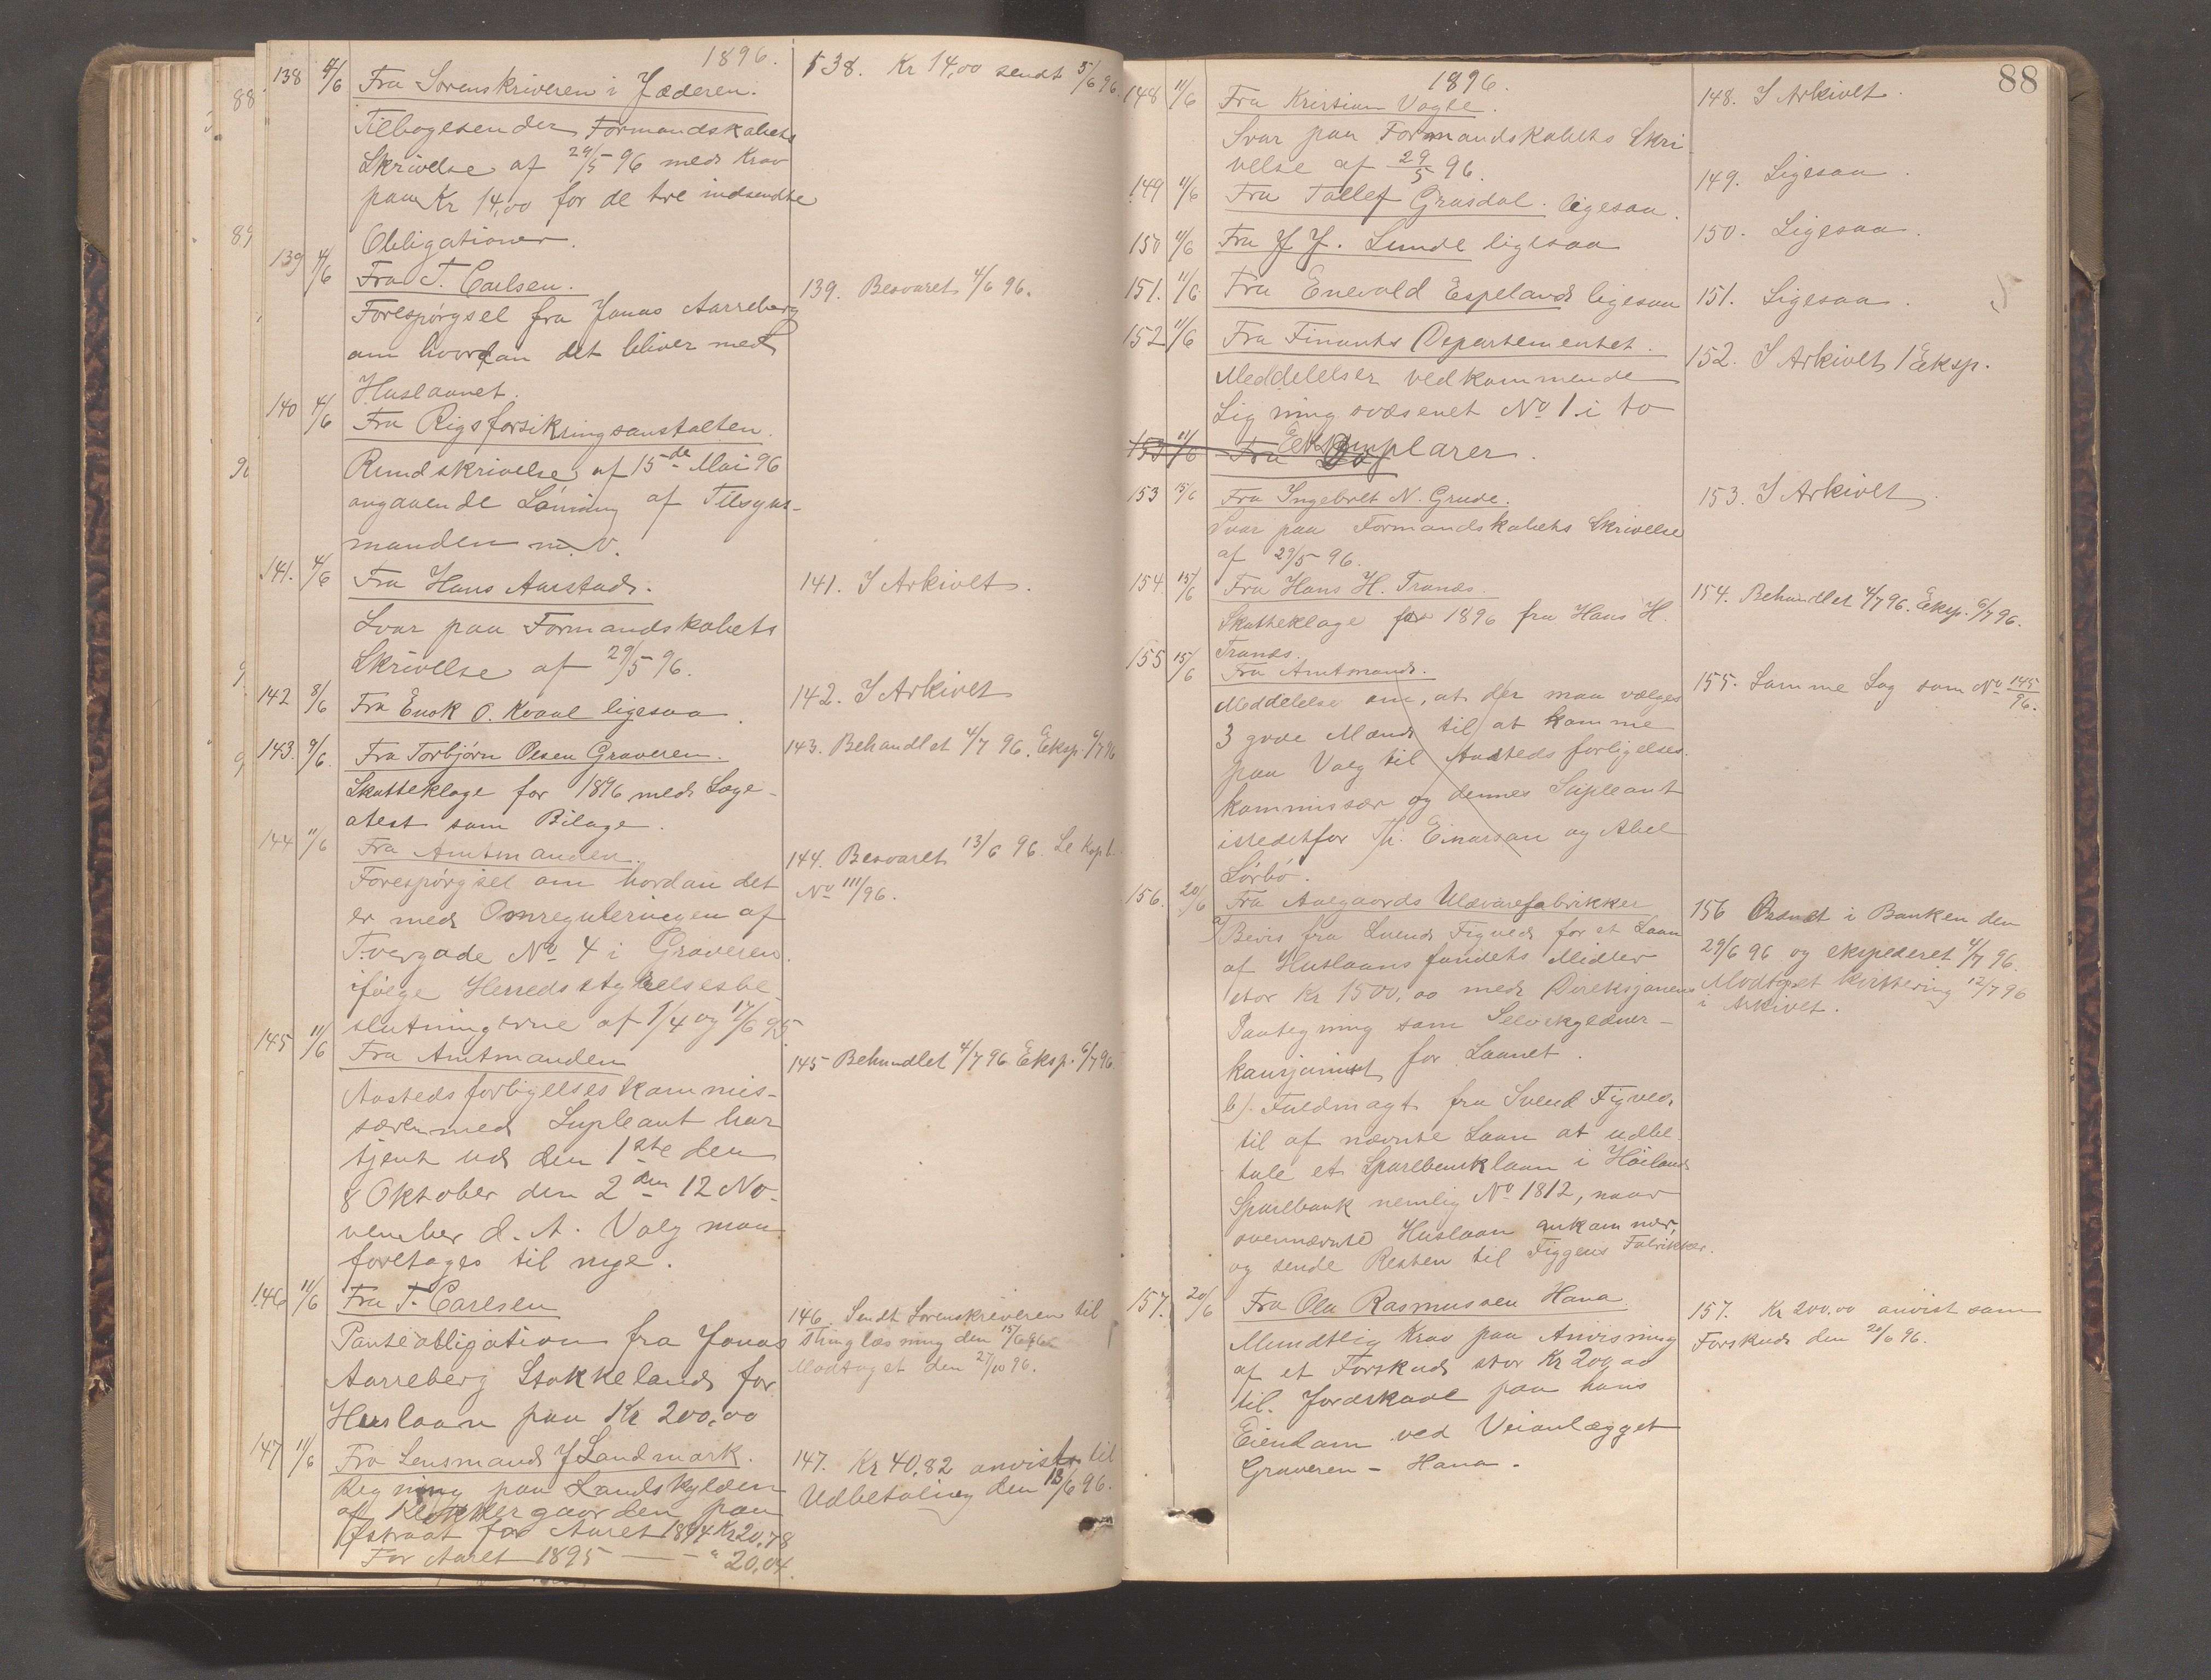 1896.
138 4/6 Fra Sorenskriveren i Jæderen.
Tilbagesender Formandskabets
Skrivelse af 29/5 96 med Krav
paa Kr 14,00 for de tre indsendte
Obligationer.
139 4/6 Fra T. Carlsen.
Forespørgsel fra Jonas Aarreberg
om hvordan det bliver med
Huslaanet.
140 4/6 Fra Rigsforsikringsanstalten.
Rundskrivelse af 15de Mai 96
angaaende Lønning af Tilsyns-
manden m.v.
141. 4/6 Fra Hans Aarstad.
Svar paa Formandskabets
Skrivelse af 29/5 96.
142 8/6 Fra Enok O. Kvaal ligesaa.
143. 9/6 Fra Torbjørn Olsen Graveren.
Skatteklage for 1896 med Læge-
atest som Bilage.
144 11/6 Fra Amtmanden.
Forespørgsel om hordan det
er med Omreguleringen af
Tvergade No 4 i Graveren
ifølge Herredsstyrelsesbe-
slutningerne af 1/4 og 17/6 95.
145 11/6 Fra Amtmanden
Aastedsforligelseskommis-
særen med Supleant har
tjent ud den 1ste den
8 Oktober den 2den 12 No-
vember d. A. Valg maa
foretages til nye.
146 11/6 Fra T. Carlsen
Panteobligation fra Jonas
Aarreberg Stokkeland for
Huslaan paa Kr 200,00
147 11/6 Fra Lensmand J Landmark.
Regning paa Landskylden
af Klokkergaarden paa
for Aaret 1894 Kr 20,78
For Aaret 1895 — - " 20,04.
138. Kr 14,00 sendt 5/6 96.
139. Besvaret 4/6 96.
141. I Arkivet.
142. I Arkivet
143. Behandlet 4/7 96. Eksp. 6/7 96
144. Besvaret 13/6 96. Se Kopb.
No 111/96.
145 Behandlet 4/7 96 Eksp. 6/7 96.
146. Sendt Sorenskriveren til
Thinglæsning den 15/6 96
Modtaget den 27/10 96.
147. Kr 40,82 anvist til
Udbetaling den 13/6 96.
88
1896.
148 11/6 Fra Kristian Vagle.
Svar paa Formandskabets Skri-
velse af 29/5 96.
149 11/6 Fra Tallef Grasdal. ligesaa.
150 11/6 Fra J J. Lunde ligesaa
151. 11/6 Fra Enevald Espeland ligesaa
152 11/6 Fra Finants Departementet.
Meddelelser vedkommende
Ligningsvæsenet No 1 i to
Eeksemplarer.
153 11/6 Fra
153 15/6 Fra Ingebret N. Grude.
Svar paa Formandskabets Skrivelse
af 29/5 96.
154. 15/6 Fra Hans H. Tranes.
Skatteklage for 1896 fra Hans H.
Tranes.
155 15/6 Fra Amtmand.
Meddelelse om, at der maa vælges
3 gode Mænd til at komme
paa Valg til Aastedsforligelses-
kommissær og dennes Supleant
istedetfor Th. Einarsan og Abel
Sørbø.
156. 20/6 Fra Aalgaards Uldvarefabrikker
a) Bevis fra Svend Figved for et Laan
af Huslaansfondets Midler
stor Kr 1500,00 med Direksjonens
Paategning som Selvskyldner-
kausjonist for Laanet.
b). Fuldmagt fra Svend Figved
til af nævnte Laan at udbe-
tale et Sparebanklaan i Høiland
Sparebank nemlig No 1812, naar
ovennævnte Huslaan ankommer,
og sende Resten til Figgens Fabrikker.
157. 20/6 Fra Ola Rasmussen Hana
Mundtlig Krav paa Anvisning
af et Forskud stor Kr 200,00
til Jordskade paa hans
Eiendom ved Veianlægget
Graveren - Hana.
148. I Arkivet.
149. Ligesaa.
150. Ligesaa.
151. Ligesaa.
152. I Arkivet 1 Eksp.
153. I Arkivet.
154. Behandlet 4/7 96. Eksp. 6/7 96.
155. Samme Sag som No 145/96.
156 Ordnet i Banken den
29/6 96 og ekspederet 4/7 96.
Modtaget kvittering 12/7 96
i Arkivet.
157. Kr 200.00 anvist som
Forskud den 20/6 96.